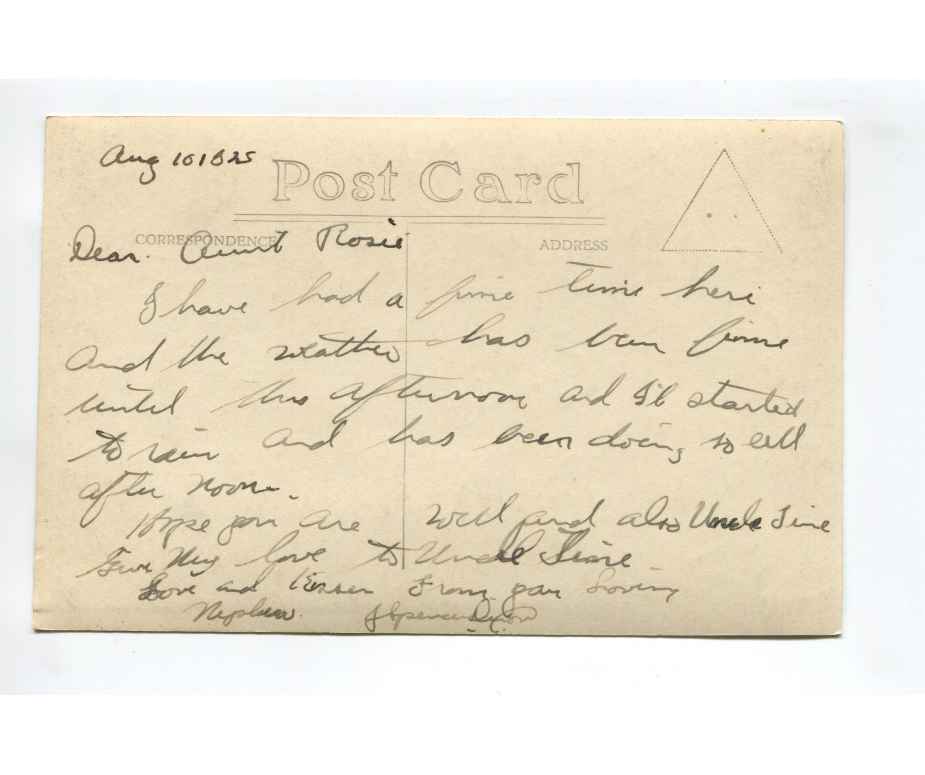 Aug 10 1925
Post Card
CORRESPONDENCE
ADDRESS
Dear. Aunt Rosie
I have had a fine time here
and the weather has been fine
until this afternoon and started
to rain and has been doing so all
after noon.
Hope you are well and also Uncle
Give My love to Uncle
Love and Kisses From your Loving
Nephew.